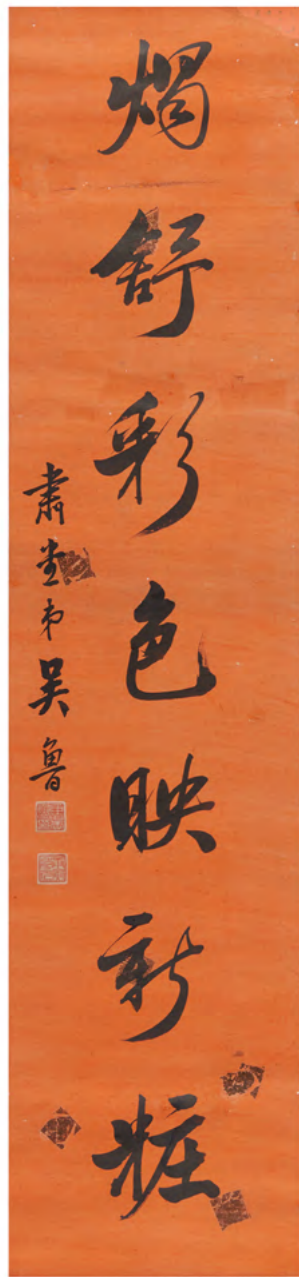 燭舒彩色映新粧
肅堂弟吳魯